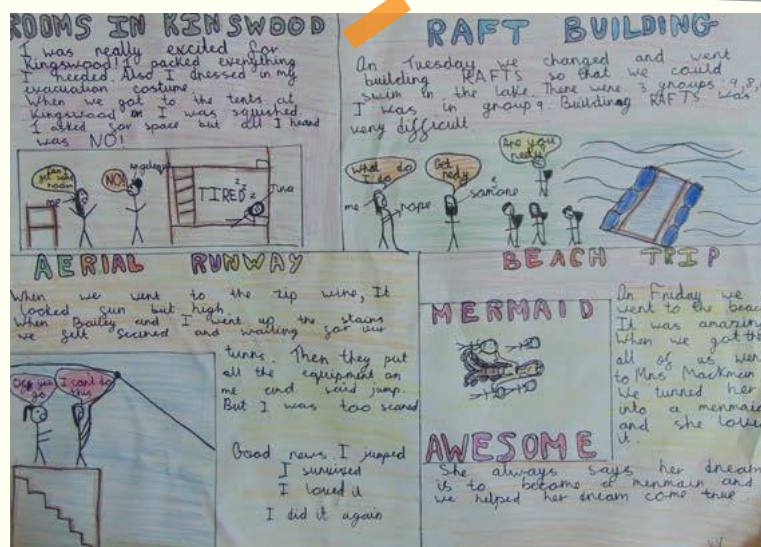 ROOMS IN KINSWOOD
I was really excited for
Kingswood! I packed everything
I needed. Also I dressed in my
evacuation costume.
When we got to the tents at
Kingswood I was squished.
I asked for space but all I heard
was NO!
me
NO!
TIRED
Tuna
RAFT BUILDING
On Tuesday we changed and went
building RAFTS so that we could
swim in the lake. There were 3 groups: 9,8,
I was in group 9. Building RAFTS was
very difficult.
What do
I do
me
rope
Get
redy
somone
Are you
redy
AERIAL RUNWAY
When we went to the zip wire, It
looked fun but high.
When Bailey and I went up the stairs
we felt scared and waiting for our
turns. Then they put
all the equipment on
me and said jump.
But I was too scared
Off you
go
I can't do
this
Good news. I jumped
I survived
I loved it
I did it again
BEACH TRIP
MERMAID
AWESOME
On Friday we
went to the beach
It was amazing
When we got
all of us went
to Mrs Mackman
We turned her
into a mermaid
and she loved
it.
She always says her dream
is to become a mermain and
we helped her dream come true.